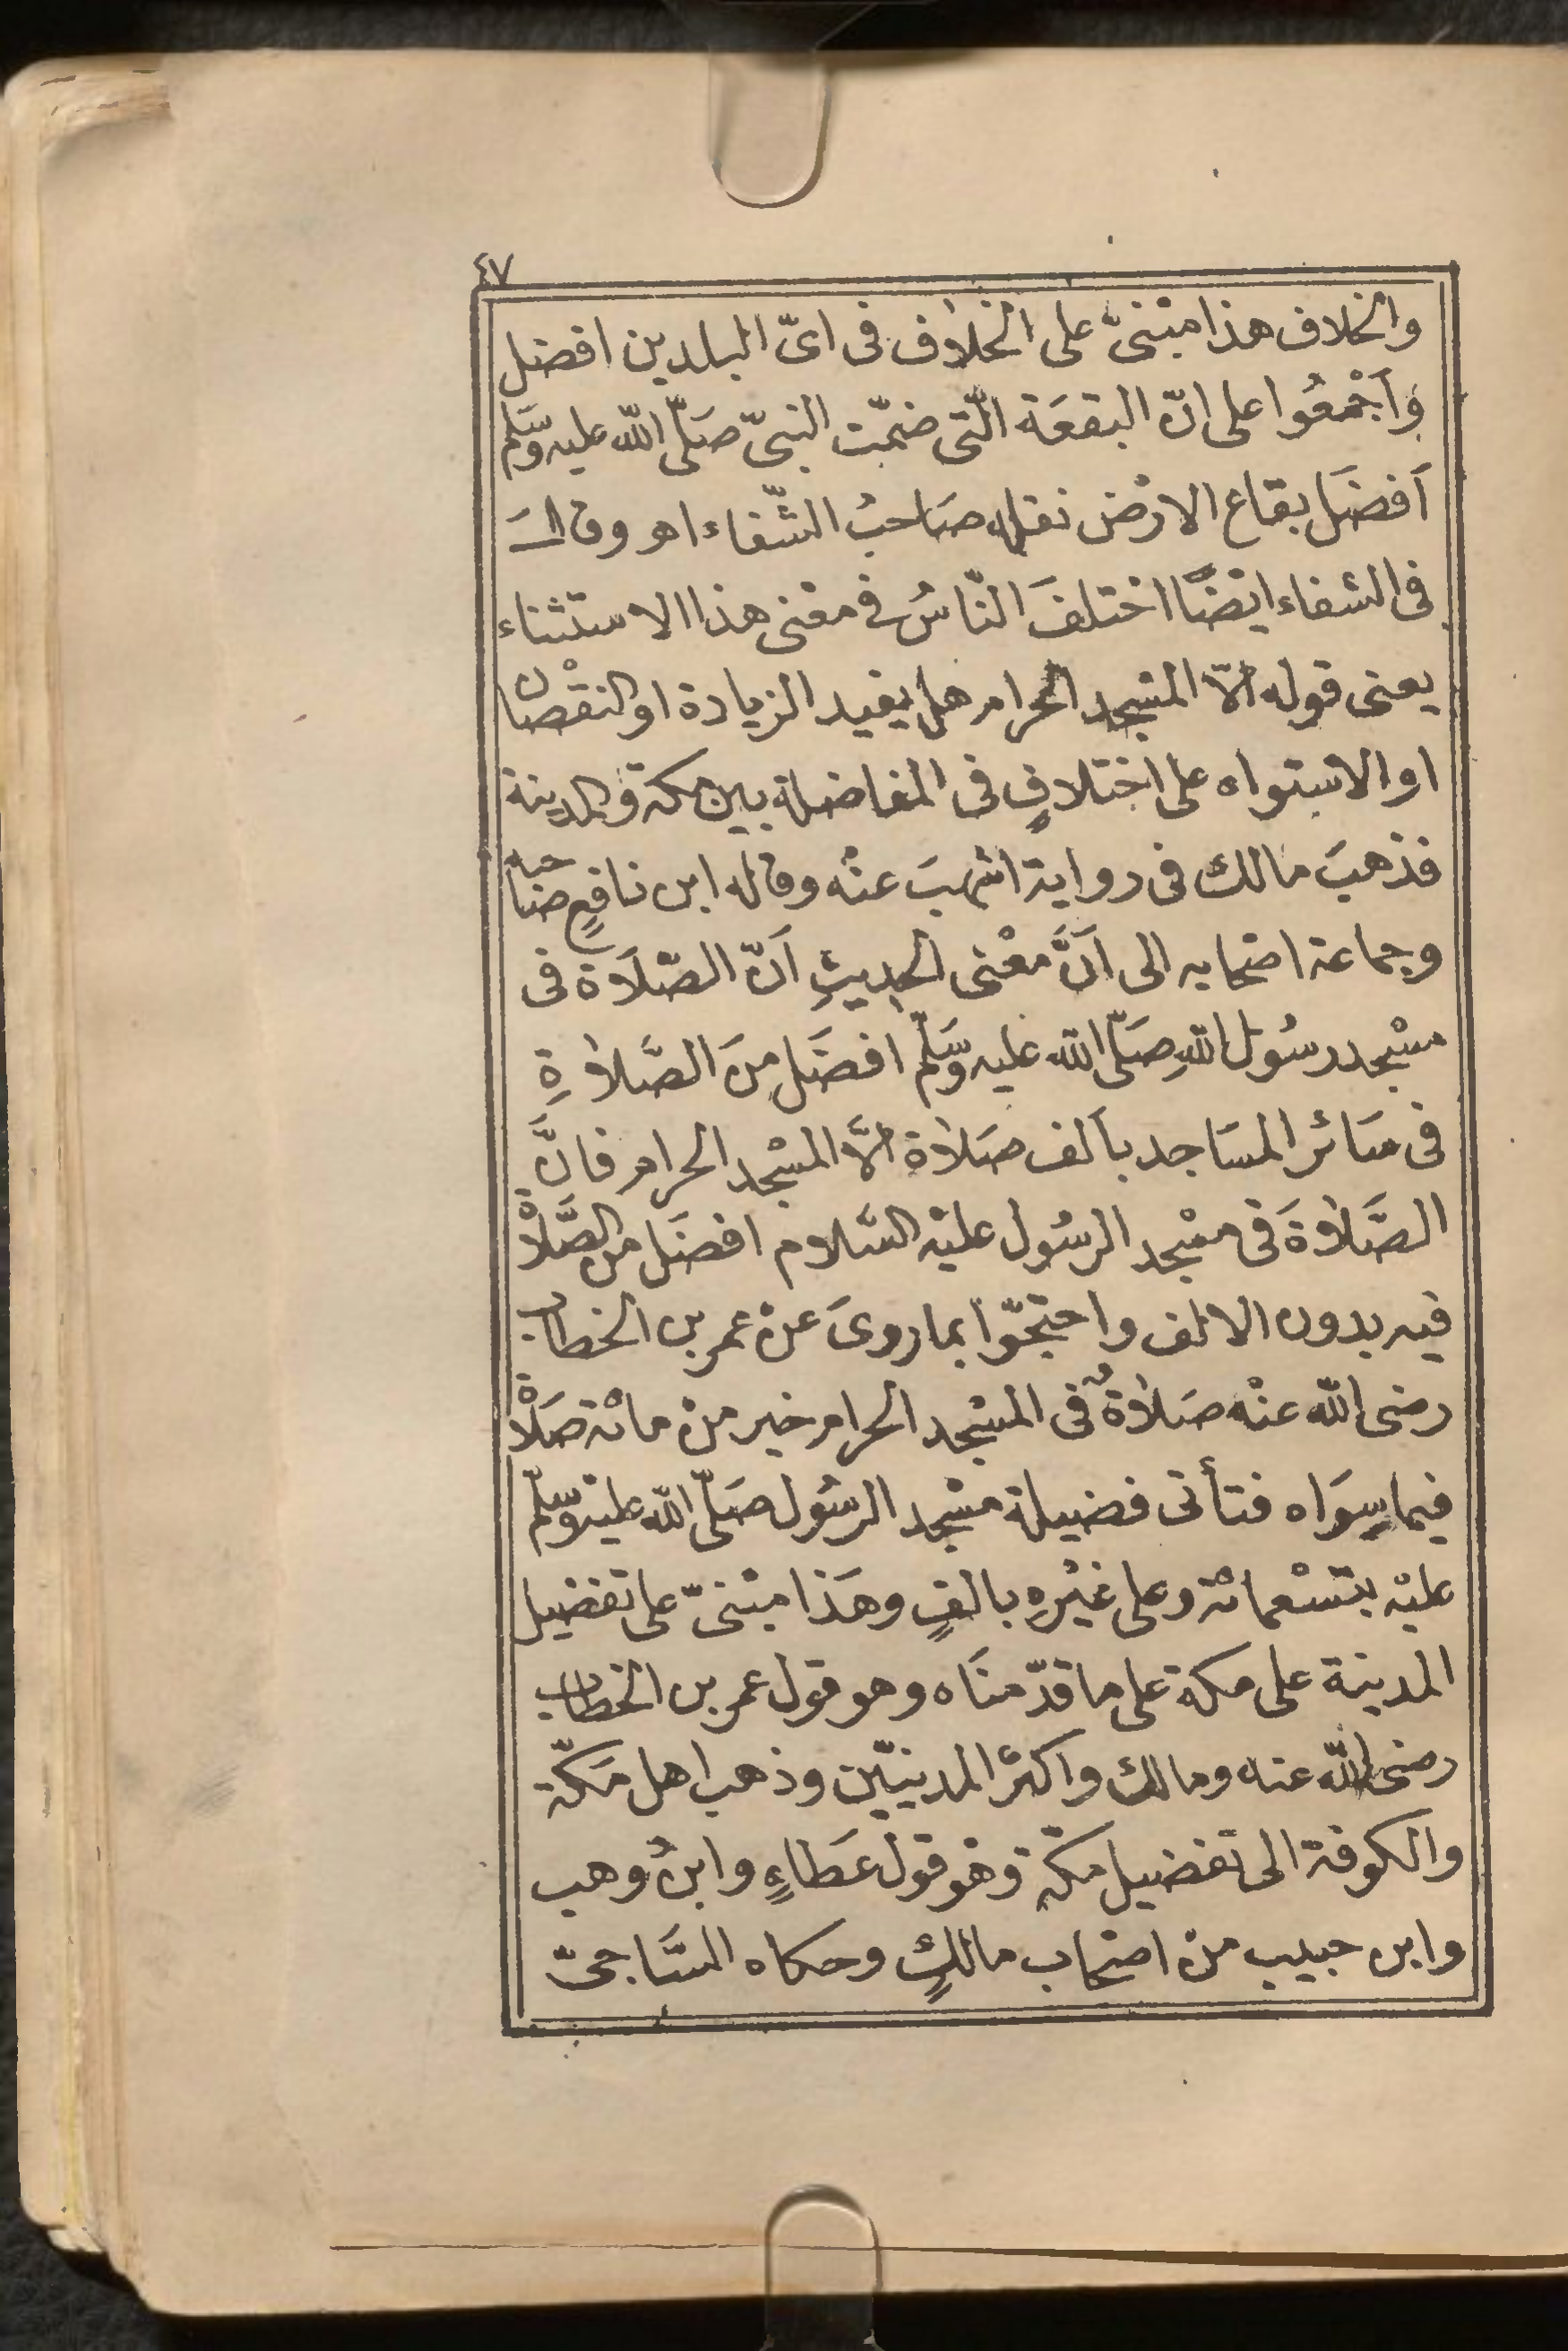 ٤٧
والخلاف هذا مبنىّ على الخلاف فى اىّ البلدين افضل
وَاَجْمَعُوا على انّ البقعَة الّتى ضمّت النبىّ صَلّى الله عليه وسَلّم
اَفضَل بقاع الارْض نقله صَاحبُ الشّفاء اهـ وقالَ
فى الشفاء ايْضًا اختلفَ النّاسُ فى معْنى هذا الاستثناء
يعنى قوله الّا المسْجد الحرام هل يفيد الزيادة او النقْصان
او الاسْتواء على اختلافٍ فى المفاضلة بين مكة والمدينة
فذهبَ مالك فى رواية اشهبَ عنْه وقاله ابن نافعٍ صَاحبه
وجماعة اصْحابه الى اَنَّ معْنى الحديثِ اَنّ الصّلَاة فى
مسْجد رسُول اللهِ صَلّى الله عليه وسَلّم افضَل مِنَ الصَّلاةِ
فى سَائر المسَاجد بألف صَلاة الّا المسْجد الحرام فانَّ
الصَّلاةَ فى مسْجد الرسُول عليْه السَّلام افضَل من الصَّلاة
فيه بدون الالف واحتجّوا بما روىَ عنْ عمر بن الخطاب
رضى الله عنْه صَلاةٌ فى المسْجد الحرام خير منْ مائة صَلاة
فيما سِوَاه فتأتى فضيلة مسْجد الرسُول صَلّى الله عليْه وسلّم
عليْه بتسْعمائة وعلى غيْرِه بالفٍ وهَذا مبْنىّ على تفضيل
المدينة على مكة على ما قدّمنَاه وهو قول عمر بن الخطاب
رضى الله عنه ومالك واكثر المدنيّين وذهب اهل مَكّة
والكوفة الى تفضيل مكّة وهو قول عَطاءٍ وابنُ وهب
وابن حبيب منْ اصْحاب مالكٍ وحكاه السَّاجىّ